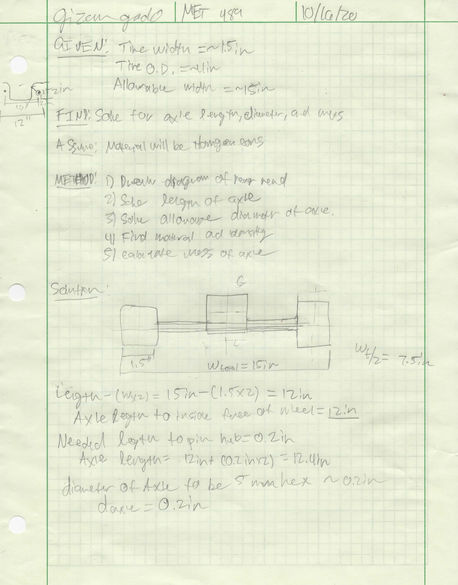 MET 489
10/16/20
GIVEN: Tire width = ~1.5in
Tire O.D. = ~4in
Allowable width = ~15in
FIND: Solve for axle length, diameter, ad mass
Assume: Material will be Homogeneous
METHOD: 1) Draw diagram of rear
2) Solve length of axle
3) Solve allowable diameter of axle.
4) Find material ad density
5) calculate mass of axle
Solution:
12"
G
1.5"
Wtotal = 15in
Wt/2 = 7.5in
Length - (Wx2) = 15in - (1.5x2) = 12in
Axle length to inside face of wheel = 12in
Needed length to pin hub = 0.2in
Axle length = 12in + (0.2inx2) = 12.4in
diameter of Axle to be 5mm hex ~ 0.2in
daxle = 0.2in